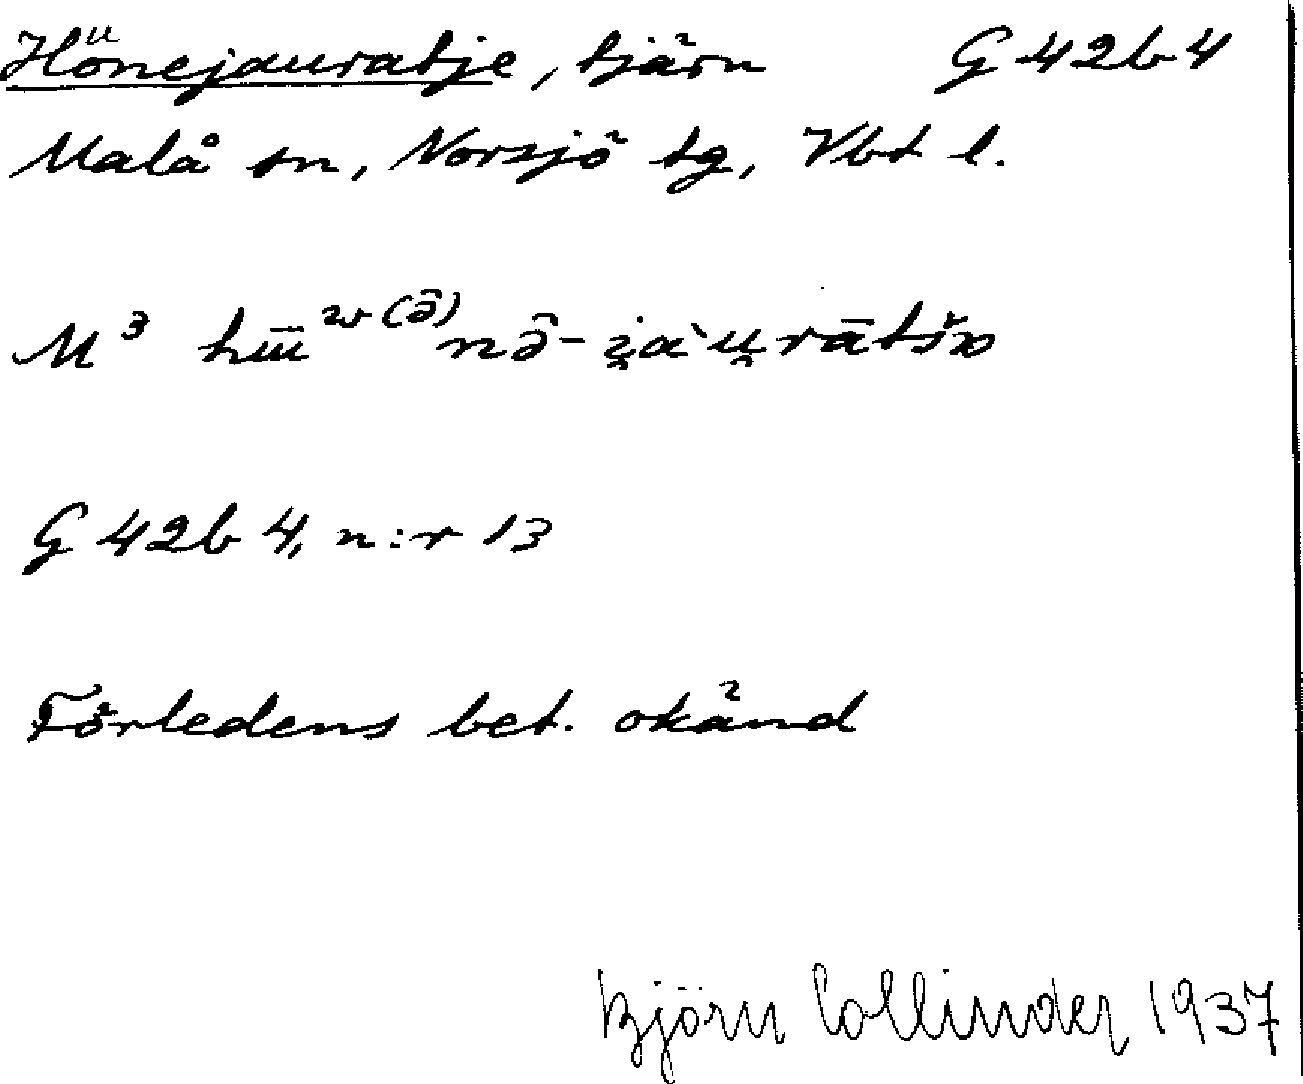 Hönejauratje, tjärn G 42b 4
Malå sn, Norsjö tg, Vbt l.
M³
G 42b 4, n:r 13
Förledens bet. okänd
Björn Collinder 1937